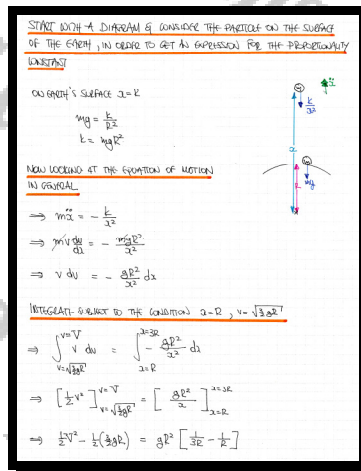 START WITH A DIAGRAM & CONSIDER THE PARTICLE ON THE SURFACE
OF THE EARTH, IN ORDER TO GET AN EXPRESSION FOR THE PROPORTIONALITY
CONSTANT
ON EARTH'S SURFACE x=R
mg = k/R²
k = mgR²
m
ẍ
k/x²
x
m
R
mg
NOW LOOKING AT THE EQUATION OF MOTION
IN GENERAL
⇒ mẍ = - k/x²
⇒ mv dv/dx = - mgR²/x²
⇒ v dv = - gR²/x² dx
INTEGRATE SUBJECT TO THE CONDITION x=R, v=√(3/2 gR)
⇒ ∫_{v=√(3/2 gR)}^{v=V} v dv = ∫_{x=R}^{x=3R} - gR²/x² dx
⇒ [1/2 v²]_{v=√(3/2 gR)}^{v=V} = [gR²/x]_{x=R}^{x=3R}
⇒ 1/2 V² - 1/2(3/2 gR) = gR² [1/3R - 1/R]